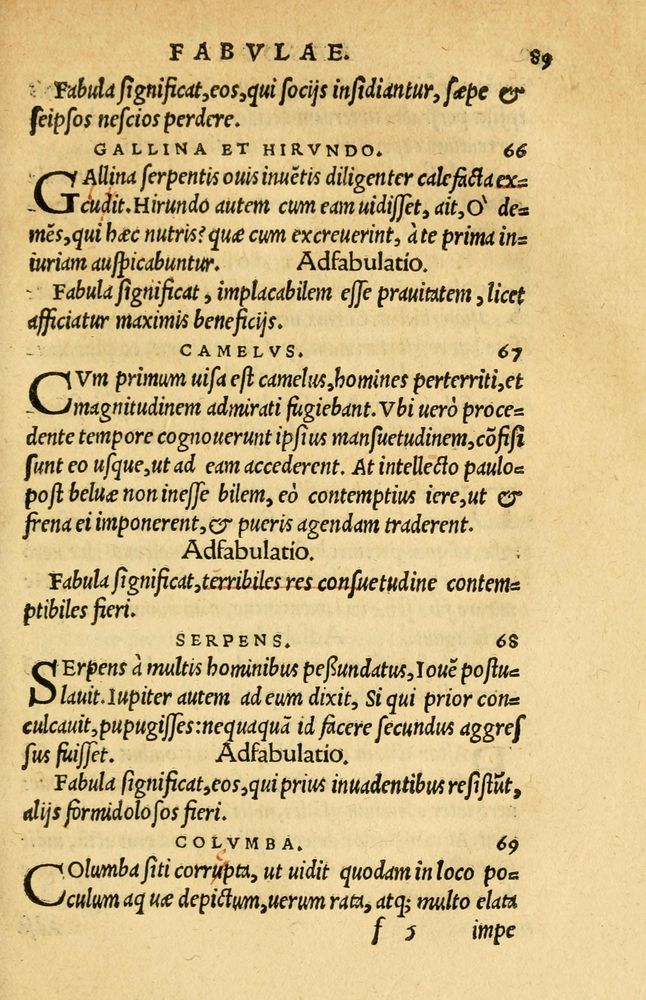 FABVLAE. 89
Fabula significat, eos, qui socijs insidiantur, sæpe &
seipsos nescios perdere.
GALLINA ET HIRVNDO. 66
GAllina serpentis ouis inuẽtis diligenter calefacta ex=
cudit. Hirundo autem cum eam uidisset, ait, O' de=
mẽs, qui hæc nutris? quæ cum excreuerint, à te prima in=
iuriam auspicabuntur. Adfabulatio.
Fabula significat, implacabilem esse prauitatem, licet
afficiatur maximis beneficijs.
CAMELVS. 67
CVm primum uisa est camelus, homines perterriti, et
magnitudinem admirati fugiebant. Vbi uerò proce=
dente tempore cognouerunt ipsius mansuetudinem, cõfisi
sunt eo usque, ut ad eam accederent. At intellecto paulo=
post beluæ non inesse bilem, eò contemptius iere, ut &
frena ei imponerent, & pueris agendam traderent.
Adfabulatio.
Fabula significat, terribiles res consuetudine contem=
ptibiles fieri.
SERPENS. 68
SErpens à multis hominibus peßundatus, Iouẽ postu=
lauit. Iupiter autem ad eum dixit, Si qui prior con=
culcauit, pupugisses: nequaquã id facere secundus aggres
sus fuisset. Adfabulatio.
Fabula significat, eos, qui prius inuadentibus resistũt,
alijs formidolosos fieri.
COLVMBA. 69
COlumba siti corrupta, ut uidit quodam in loco po=
culum aquæ depictum, uerum rata, atq; multo elata
f 5 impe